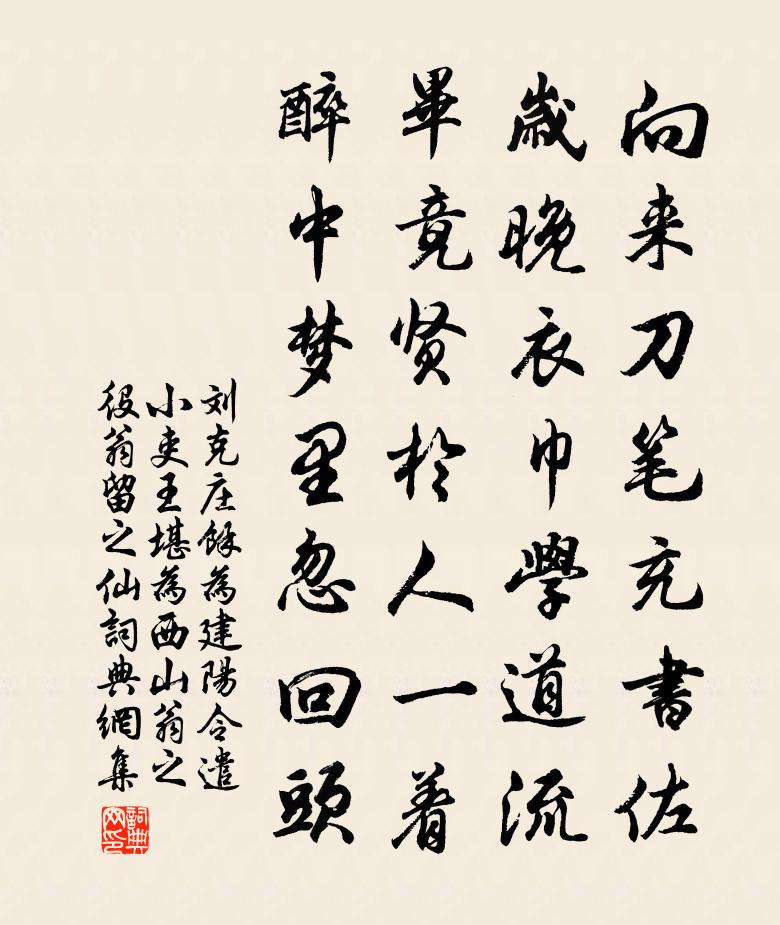 向来刀笔充書佐
歲晚衣巾學道流
畢竟贤於人一着
醉中梦里忽回頭
刘克庄馀為建陽令遣
小吏王堪為西山翁之
役翁留之仙詞典網集
詞典
网印